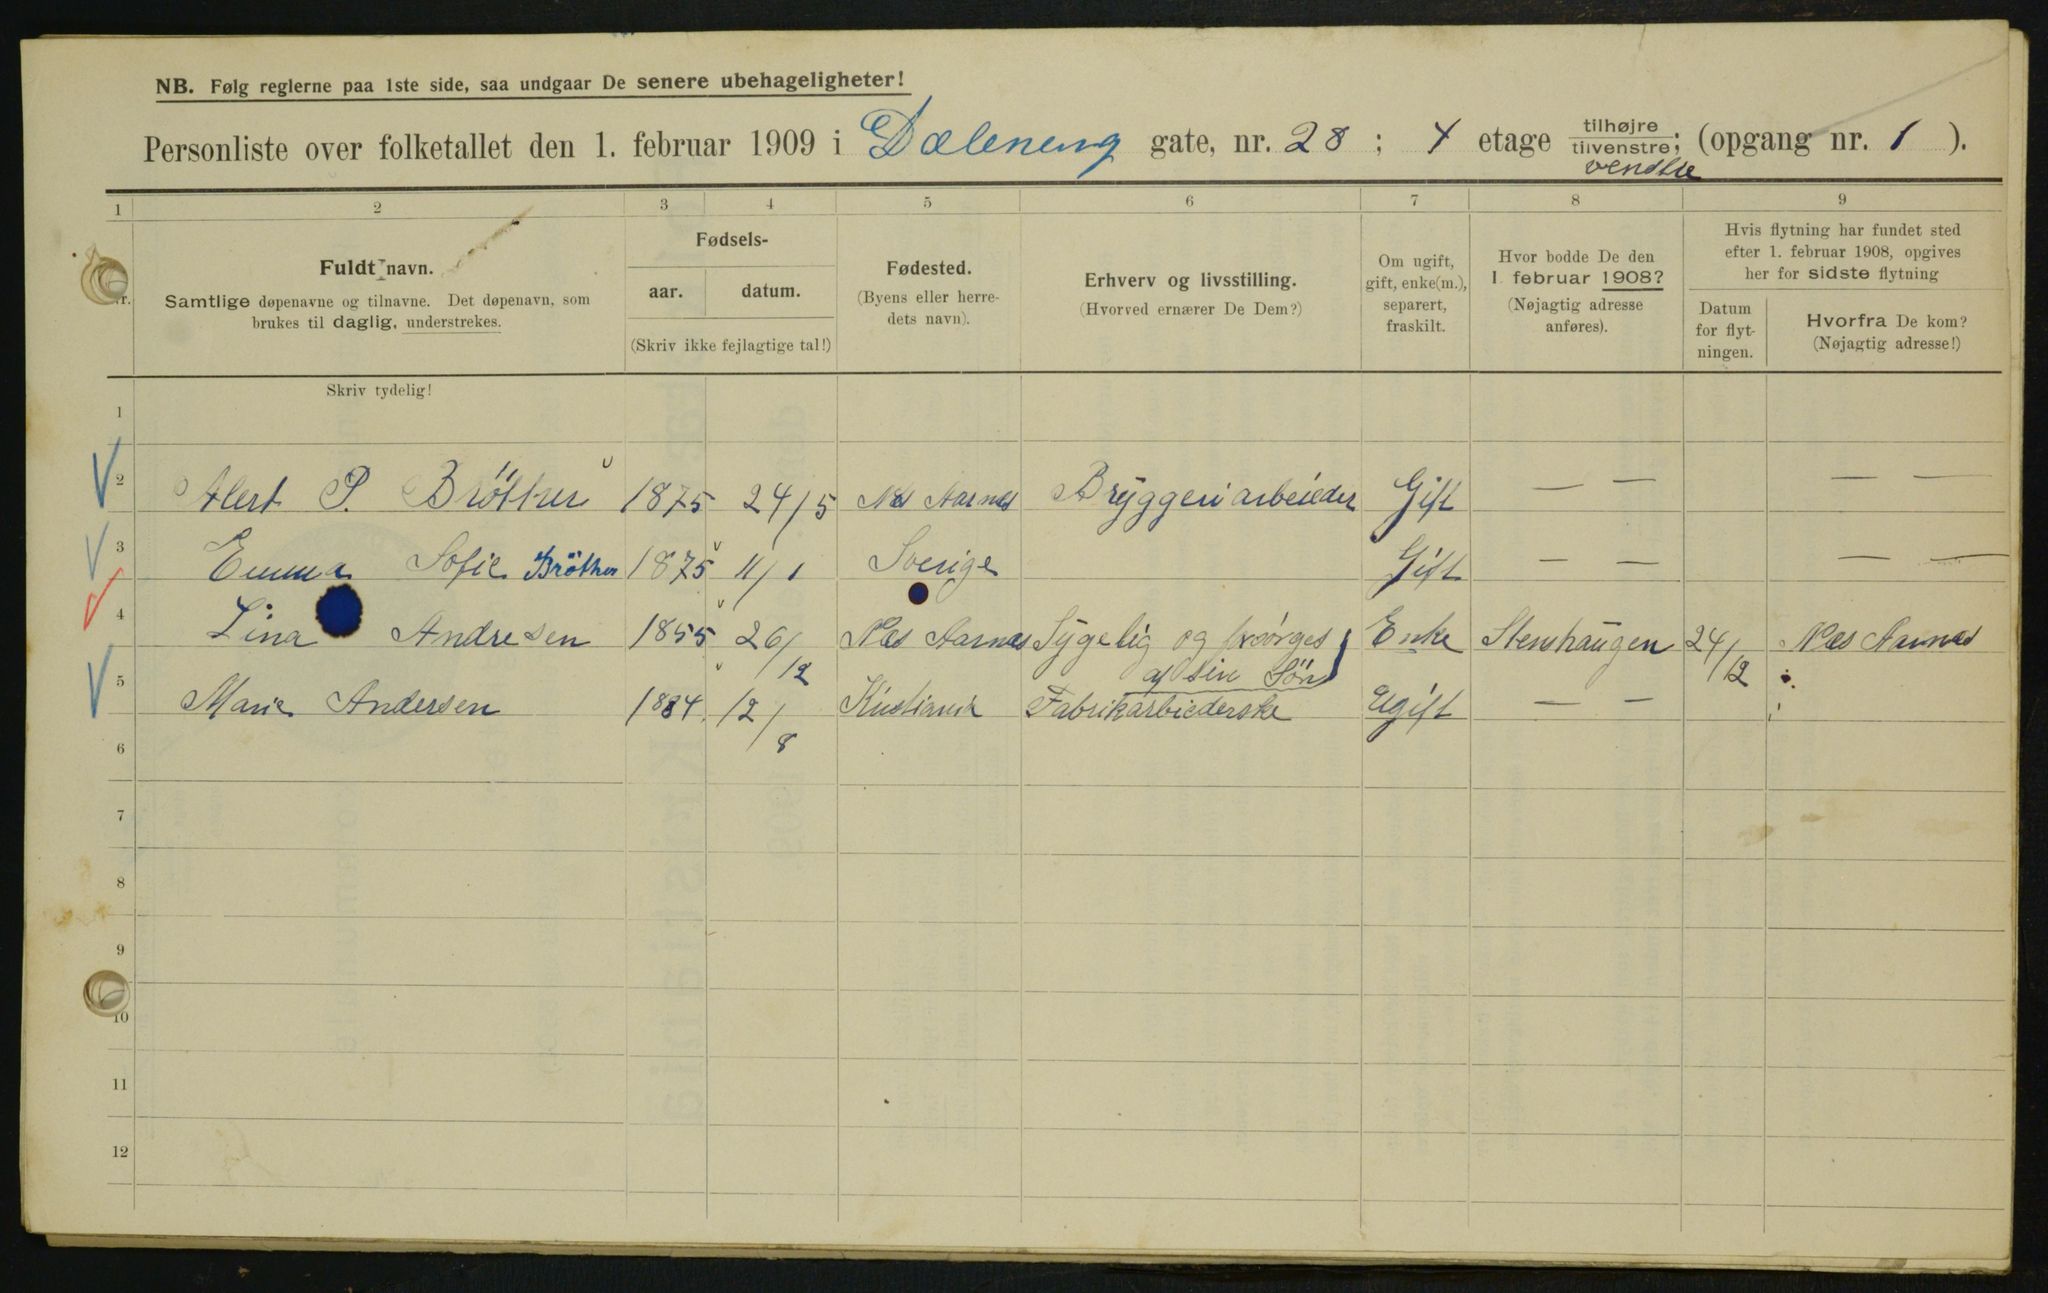 NB. Følg reglerne paa 1ste side, saa undgaar De senere ubehageligheter!
Personliste over folketallet den 1. februar 1909 i Dæleneng gate, nr. 28 ; 4 etage tilhøjre tilvenstre; (opgang nr. 1 ).
1 2 3 4 5 6 7 8 9
Fuldt navn.
Samtlige døpenavne og tilnavne. Det døpenavn, som
brukes til daglig, understrekes.
Fødsels-
aar. datum.
(Skriv ikke fejlagtige tal!)
Fødested.
(Byens eller herre-
dets navn).
Erhverv og livsstilling.
(Hvorved ernærer De Dem?)
Om ugift,
gift, enke(m.),
separert,
fraskilt.
Hvor bodde De den
1. februar 1908?
(Nøjagtig adresse
anføres).
Hvis flytning har fundet sted
efter 1. februar 1908, opgives
her for sidste flytning
Datum
for flyt-
ningen.
Hvorfra De kom?
(Nøjagtig adresse!)
Skriv tydelig!
1
2 Alert P. Bröther 1875 24/5 Næs Aarnæs Bryggeriarbeieder Gift — — — —
3 Emma Sofie Bröther 1875 11/1 Sverige Gift — — — —
4 Lina Andresen 1855 26/12 Næs Aarnæs Sygelig og forsörges af sin Sön Enke Stenshaugen 24/12 Næs Aarnæs
5 Marie Andersen 1884 12/8 Kristiania Fabrikarbiederske Ugift — —
6
7
8
9
10
11
12